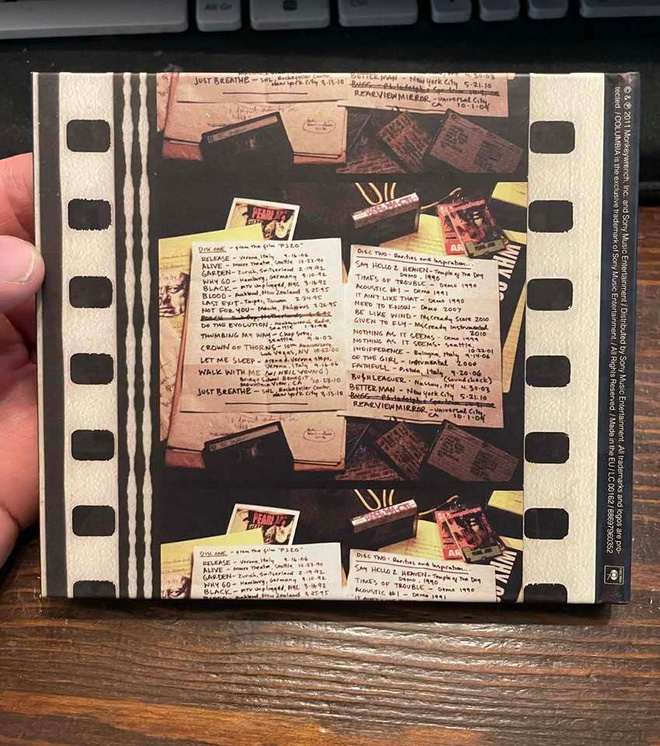 Alt Gr
JUST BREATHE - SNL, Rockefeller Center,
New York City 3.13.10
BETTERMAN - New York City 5.21.10
REARVIEWMIRROR - Universal City,
CA 10.1.04
PEARL JAM
DISC ONE - from the film "PJ20"
RELEASE - Verona, Italy 9.16.06
ALIVE - Moore Theatre, Seattle 12.22.90
GARDEN - Zurich, Switzerland 2.19.92
WHY GO - Hamburg, Germany 3.10.92
BLACK - MTV unplugged, NYC 3.16.92
BLOOD - Auckland, New Zealand 3.25.95
LAST EXIT - Taipei, Taiwan 2.24.95
NOT FOR YOU - Manila, Philippines 2.26.95
DO THE EVOLUTION - Monkeywrench Radio,
Seattle 1.31.98
THUMBING MY WAY - Chop Suey,
Seattle 9.6.02
CROWN OF THORNS - 10th Anniversary,
Las Vegas, NV 10.22.00
LET ME SLEEP - Arena di Verona steps,
Verona, Italy 9.16.06
WALK WITH ME (w/ NEIL YOUNG)
Bridge School Benefit
Mountain View, CA 10.23.10
JUST BREATHE - SNL, Rockefeller Center,
New York City 3.13.10
DISC TWO - Rarities and Inspiration...
SAY HELLO 2 HEAVEN - Temple of the Dog
Demo 1990
TIMES OF TROUBLE - Demo 1990
ACOUSTIC #1 - Demo 1991
IT AIN'T LIKE THAT - Demo 1990
NEED TO KNOW - Demo 2007
BE LIKE WIND - McCready Score 2010
GIVEN TO FLY - McCready Instrumental
2010
NOTHING AS IT SEEMS - Demo 1999
NOTHING AS IT SEEMS - Seattle
INDIFFERENCE - Bologna, Italy 9.14.06
OF THE GIRL - Instrumental 2000
FAITHFULL - Pistoia, Italy 9.20.06
(soundcheck)
BUSHLEAGUER - Nassau 4.30.03
BETTERMAN - New York City 5.21.10
REARVIEWMIRROR - Universal City,
CA 10.1.04
PEARL JAM
DISC ONE - from the film "PJ20"
RELEASE - Verona, Italy 9.16.06
ALIVE - Moore Theatre, Seattle 12.22.90
GARDEN - Zurich, Switzerland 2.19.92
WHY GO - Hamburg, Germany 3.10.92
BLACK - MTV unplugged, NYC 3.16.92
DISC TWO - Rarities and Inspiration...
SAY HELLO 2 HEAVEN - Temple of the Dog
Demo 1990
TIMES OF TROUBLE - Demo 1990
ACOUSTIC #1 - Demo 1991
© & ℗ 2011 Monkeywrench, Inc. and Sony Music Entertainment / Distributed by Sony Music Entertainment. All trademarks and logos are pro-
tected. / COLUMBIA is the exclusive trademark of Sony Music Entertainment. / All Rights Reserved. / Made in the EU / LC 00162 / 88697960352